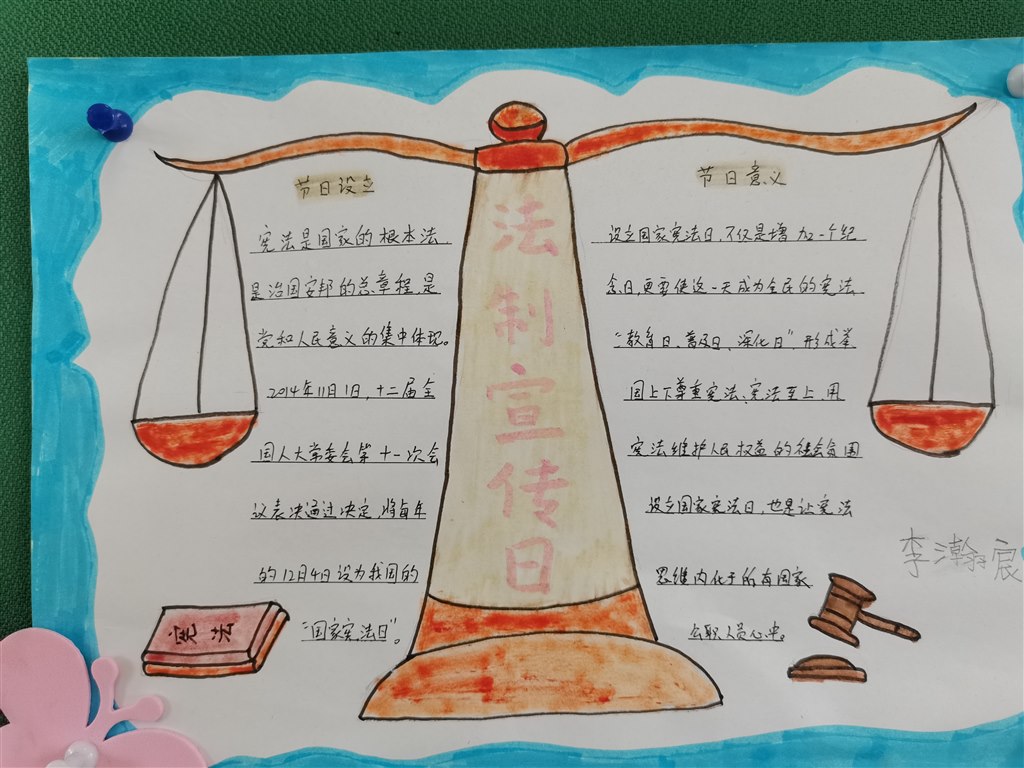 节日设立
宪法是国家的根本法
是治国安邦的总章程,是
党和人民意义的集中体现。
2014年11日1日,十二届全
国人大常委会第十一次会
议表决通过决定,将每年
的12月4日设为我国的
"国家宪法日"。
宪法
法制宣传日
节日意义
设立国家宪法日,不仅是增加2一个纪
念日,更要使这一天成为全民的宪法
"教育日、普及日、深化日",形成举
国上下尊重宪法、宪法至上、用
宪法维护人民权益的社会负围
设立国家宪法日,也是让宪法
思维内化于所有国家
公职人员心中。
李瀚宸